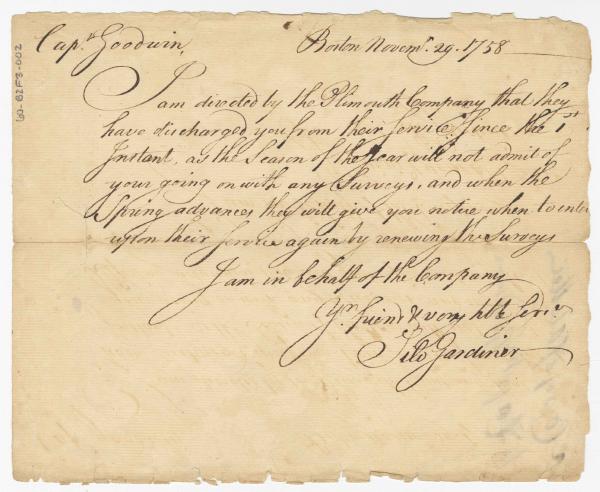 Cap.n Goodwin, Boston Novem.r 29. 1758
I am directed by the Plimouth Company that they
have discharged you from their Service Since the 1st
Instant, as the Season of the Year will not admit of
your going on with any Surveys, and when the
Spring advances they will give you notice when to enter
upon their Service again by renewing the Surveys
I am in behalf of the Company
Yr. friend & very hble Serv.t
Silv Gardiner
60-82F8-002